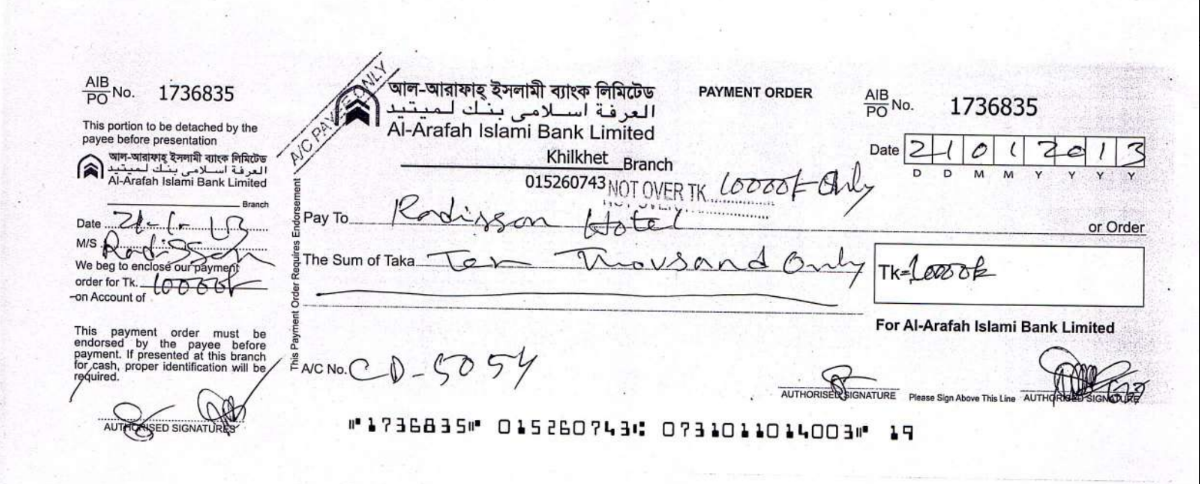 AIB
PO No. 1736835
This portion to be detached by the
payee before presentation
আল-আরাফাহ্ ইসলামী ব্যাংক লিমিটেড
العرفة اسلامى بنك لميتيد
Al-Arafah Islami Bank Limited
Branch
Date 21-1-13
M/S Radisson
We beg to enclose our payment
order for Tk. 10000/-
on Account of
This payment order must be
endorsed by the payee before
payment. If presented at this branch
for cash, proper identification will be
required.
AUTHORISED SIGNATURES
This Payment Order Requires Endorsement
A/C PAYEE ONLY
আল-আরাফাহ্ ইসলামী ব্যাংক লিমিটেড
العرفة اسلامى بنك لميتيد
Al-Arafah Islami Bank Limited
Khilkhet Branch
015260743
PAYMENT ORDER
AIB
PO No. 1736835
Date 21012013
D D M M Y Y Y Y
NOT OVER TK. 10000/- Only
Pay To Radisson Hotel or Order
The Sum of Taka Ten Thousand Only
Tk=10000/-
For Al-Arafah Islami Bank Limited
A/C No. CD-5054
AUTHORISED SIGNATURE Please Sign Above This Line AUTHORISED SIGNATURE
⑈1736835⑈ 015260743⑆ 0731011014003⑈ 19